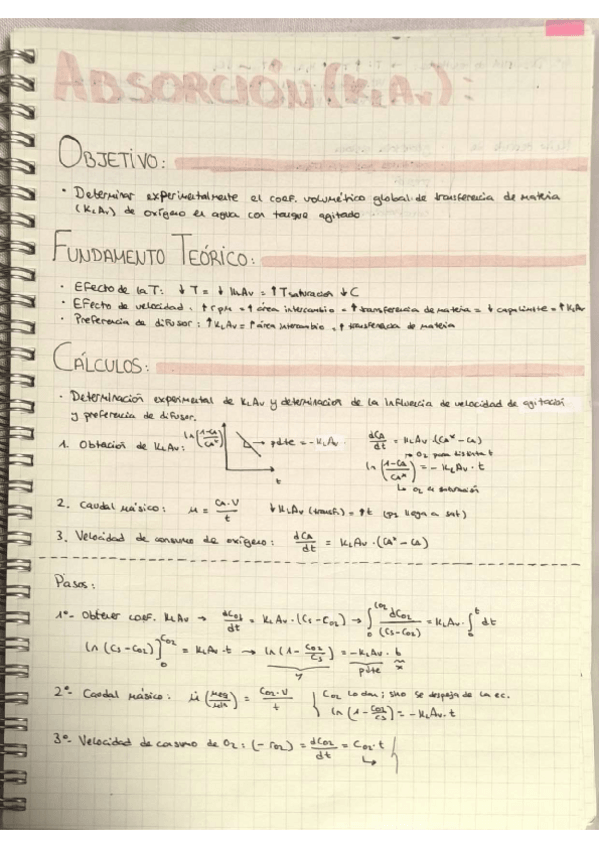 ABSORCIÓN (KLAV):
OBJETIVO:
· Determinar experimentalmente el coef. volumétrico global de transferencia de materia
(KLAV) de oxígeno en agua con tanque agitado
FUNDAMENTO TEÓRICO:
· Efecto de la T: ↓ T = ↓ KLAV = ↑ T saturación ↓ C
· Efecto de velocidad: ↑ rpm = ↑ área intercambio = ↑ transferencia de materia = ↓ capa límite = ↑ KLAV
· Preferencia de difusor: ↑ KLAV = ↑ área intercambio, ↑ transferencia de materia
CÁLCULOS:
· Determinación experimental de KLAV y determinación de la influencia de velocidad de agitación
y preferencia de difusor.
1. Obtación de KLAV: ln(1-CA/CA*) → pdte = -KLAV. dCA/dt = KLAV · (CA* - CA)
→ O2 para distinta t
ln(1-CA/CA*) = - KLAV · t
t ↳ O2 de saturación
2. Caudal másico: ṁ = CA·V/t ↓ KLAV (transf.) = ↑t (pq llega a sat)
3. Velocidad de consumo de oxígeno: dCA/dt = KLAV · (CA* - CA)
Pasos:
1º- Obtener coef. KLAV → dCO2/dt = KLAV · (CS - CO2) → ∫0^CO2 dCO2/(CS-CO2) = KLAV · ∫0^t dt
ln (CS - CO2)]0^CO2 = KLAV · t → ln(1 - CO2/CS) = -KLAV · t
y pdte x
2º- Caudal másico: ṁ = CO2·V/t CO2 lo dan; sino se despeja de la ec.
ln(1 - CO2/CS) = -KLAV · t
3º- Velocidad de consumo de O2: (-rO2) = dCO2/dt = CO2·t